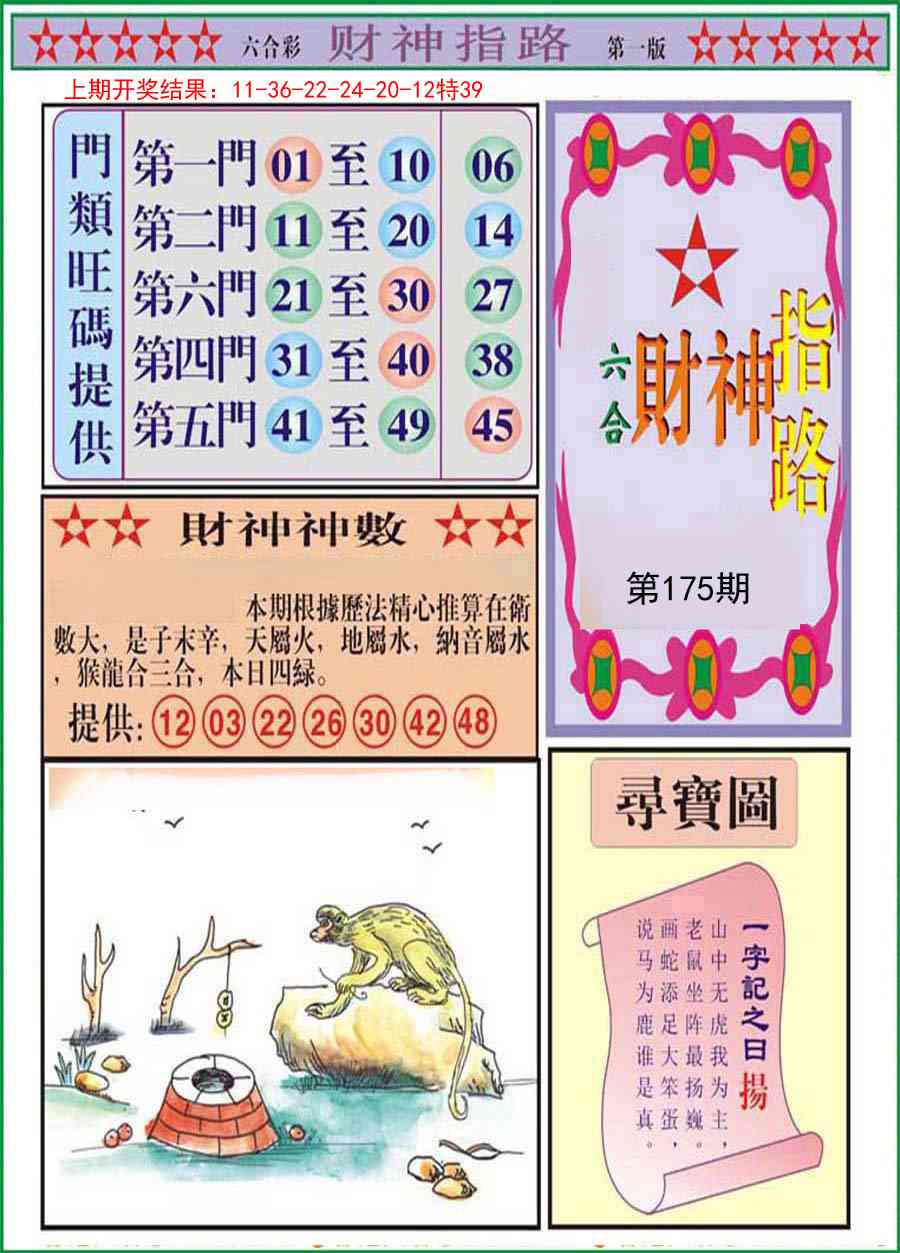 六合彩 财神指路 第一版
上期开奖结果：11-36-22-24-20-12特39
門類旺碼提供
第一門 01 至 10 06
第二門 11 至 20 14
第六門 21 至 30 27
第四門 31 至 40 38
第五門 41 至 49 45
六合 財神指路
第175期
財神神數
本期根據歷法精心推算在衛
數大，是子末辛，天屬火，地屬水，納音屬水
，猴龍合三合，本日四緑。
提供: 12 03 22 26 30 42 48
尋寶圖
一字記之日揚
山中无虎我为主，
老鼠坐阵最扬巍。
画蛇添足大笨蛋，
说马为鹿谁是真。